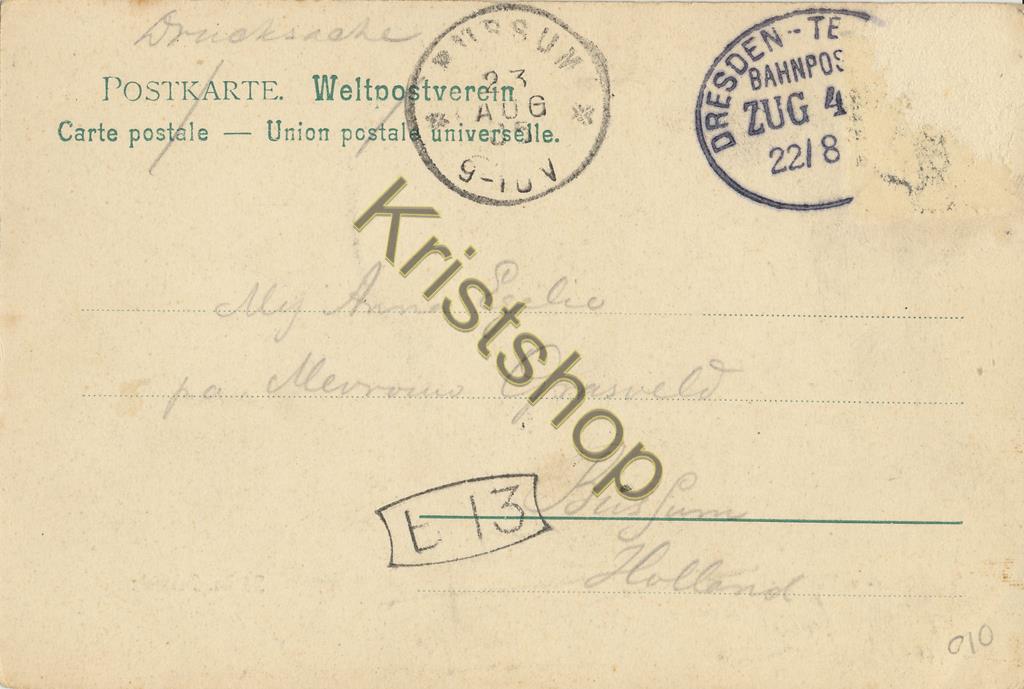 Drucksache
POSTKARTE. Weltpostverein
Carte postale — Union postale universelle.
BUSSUM
23
AUG
9-10V
DRESDEN--TE
BAHNPOS
ZUG 4
22/8
Mej Anna
pa. Mevrouw
Bussum
Holland
E 13
Kristshop
010